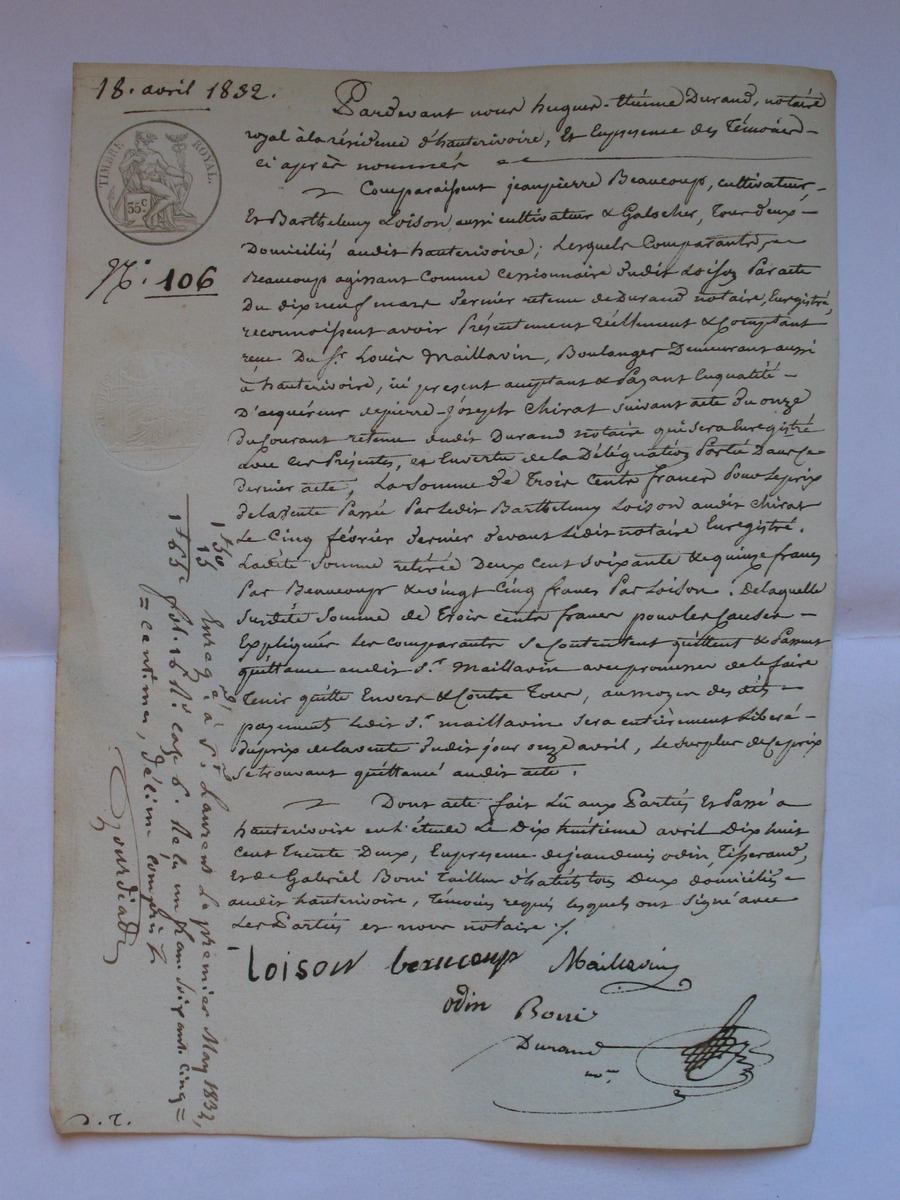 18. avril 1832.
TIMBRE ROYAL.
35 c
N.° 106
Pardevant nous hugues-étienne Durand, notaire
royal à la résidence d'hauterivoire, Et Enpresence des Témoins
ci après nommés
Comparaissent jeanpierre Beaucoup, cultivateur,
Et Barthelemy Loison, aussi cultivateur & Galocher, Tous deux
Domiciliés audit hauterivoire ; Lesquels Comparants,
Beaucoup agissant Comme Cessionnaire dudit Loison Par acte
Du dix neuf mars dernier retenu de Durand notaire, Enregistré,
reconnoissent avoir Présentement réellement & Comptant
reçu Du S.r Louis Maillavin, Boulanger Demeurant aussi
à hauterivoire, ici present acceptant & Payant Enqualité
D'acquéreur depierre-joseph Chirat suivant acte du onze
du Courant retenu dudit Durand notaire qui sera Enregistré
avec ces Présentes, et Envertu de la Délégation Portée Dans Ce
dernier acte, La Somme de Trois Cents francs Pour Le prix
de la vente Passée Par ledit Barthelemy Loison audit Chirat
Le Cinq février dernier devant Ledit notaire Enregistré.
Ladite Somme retirée Deux Cent Soixante & quinze francs
Par Beaucoup & vingt Cinq francs Par Loison. De laquelle
Susdite Somme de trois cents francs pour les Causes
Expliquées Les comparants se Contentent quittent & Passent
quittance audit S.r Maillavin avec promesse de le faire
Tenir quitte Envers & Contre Tous, au moyen des dits
payements Ledit S.r maillavin sera entièrement Liberé
du prix de la vente dudit jour onze avril, Le surplus de Ce prix
se trouvant quittancé audit acte.
Dont acte fait Lû aux Parties Et Passé a
hauterivoire en l'étude Le Dix huitième avril Dix huit
cent Trente Deux, En presence de jean denis odin, Tisserand,
Et de Gabriel Borri Tailleur d'habits tous Deux domiciliés
audit hauterivoire, Témoins requis lesquels ont Signé avec
Les Parties et nous notaire ./.
Loison beaucoup Maillavin
odin Borri
Durand
n.re
1f 50
15
1f 65c
Enreg.é à S.t Laurent Le premier May 1832,
fol. 16 R.o case 6. Reçu un franc Soixante Cinq =
= centimes, décime compris